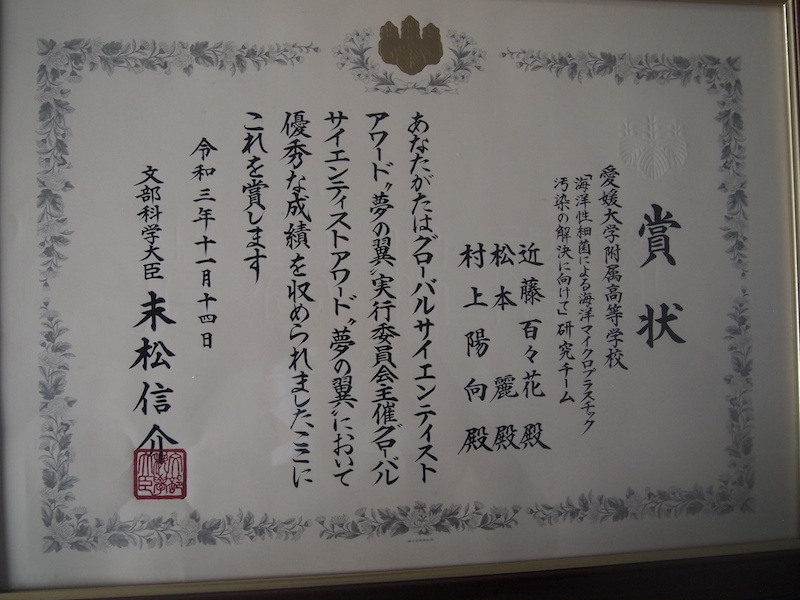 賞状
愛媛大学附属高等学校
「海洋性細菌による海洋マイクロプラスチック
汚染の解決に向けて」研究チーム
近藤百々花殿
松本麗殿
村上陽向殿
あなたがたはグローバルサイエンティスト
アワード〝夢の翼〟実行委員会主催グローバル
サイエンティストアワード〝夢の翼〟において
優秀な成績を収められましたここに
これを賞します
令和三年十一月十四日
文部科学大臣 末松信介